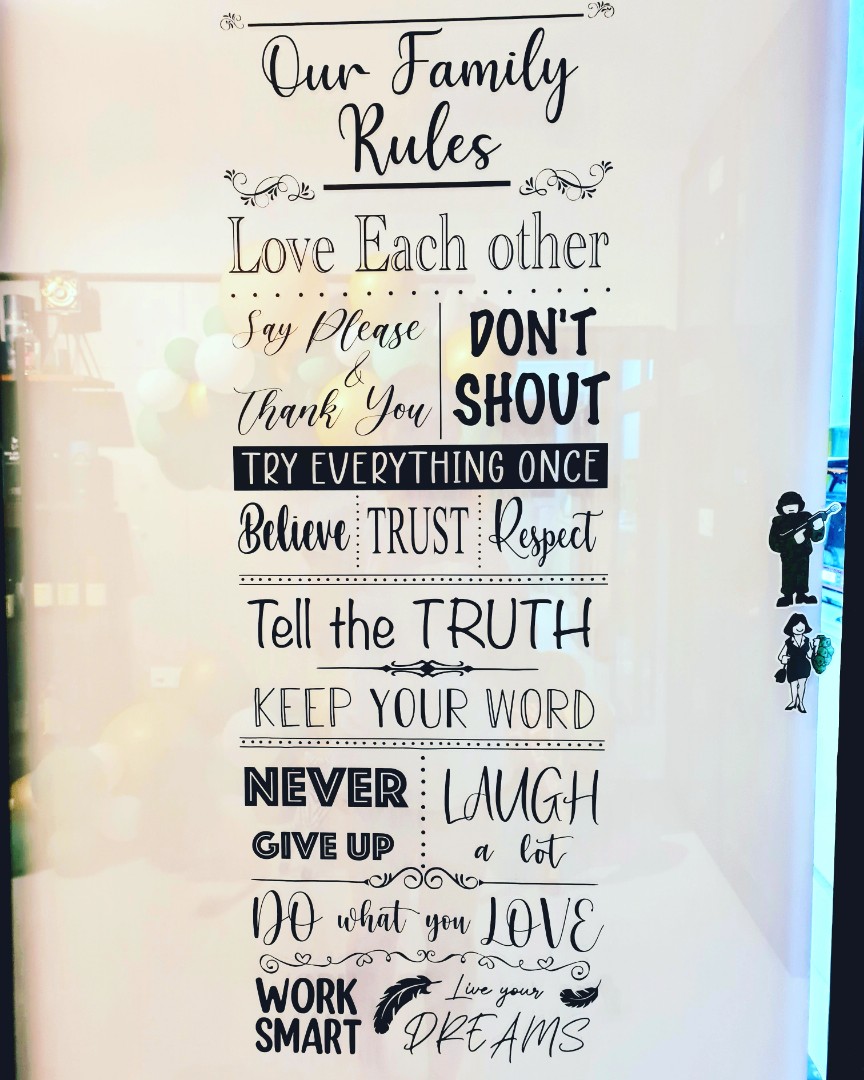 Our Family
Rules
Love Each other
Say Please
&
Thank You
DON'T
SHOUT
TRY EVERYTHING ONCE
Believe TRUST Respect
Tell the TRUTH
KEEP YOUR WORD
NEVER
GIVE UP
LAUGH
a lot
DO what you LOVE
WORK
SMART
Live your
DREAMS